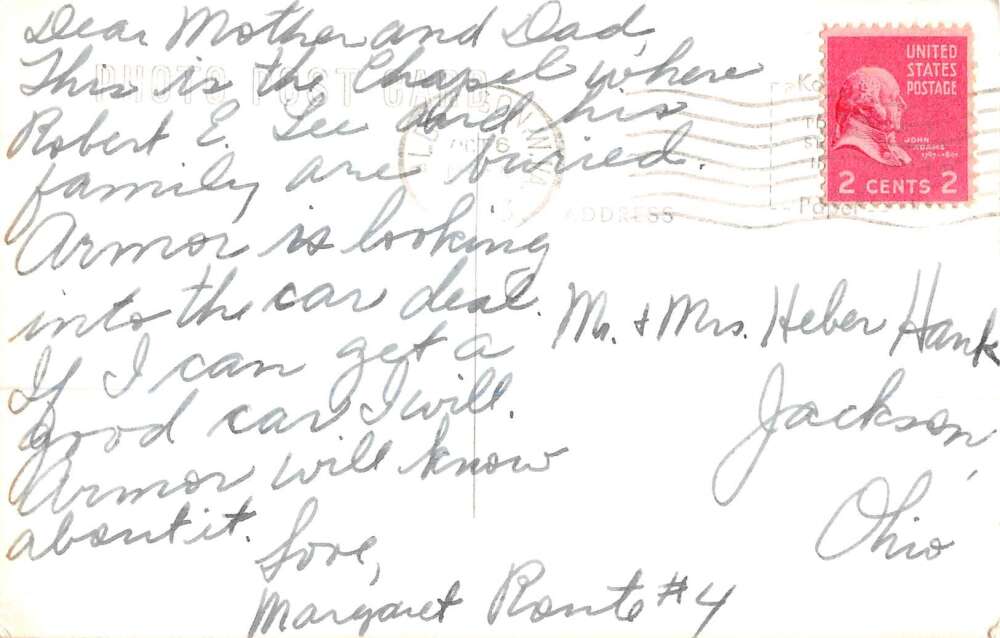 Dear Mother and Dad,
This is the Chapel where
Robert E. Lee and his
family are buried.
Armor is looking
into the car deal.
If I can get a
good car I will.
Armor will know
about it.
Love,
Margaret
PHOTO POST CARD
ADDRESS
UNITED
STATES
POSTAGE
JOHN
ADAMS
2 CENTS 2
Mr. + Mrs. Heber Hank
Jackson,
Ohio
Route #4